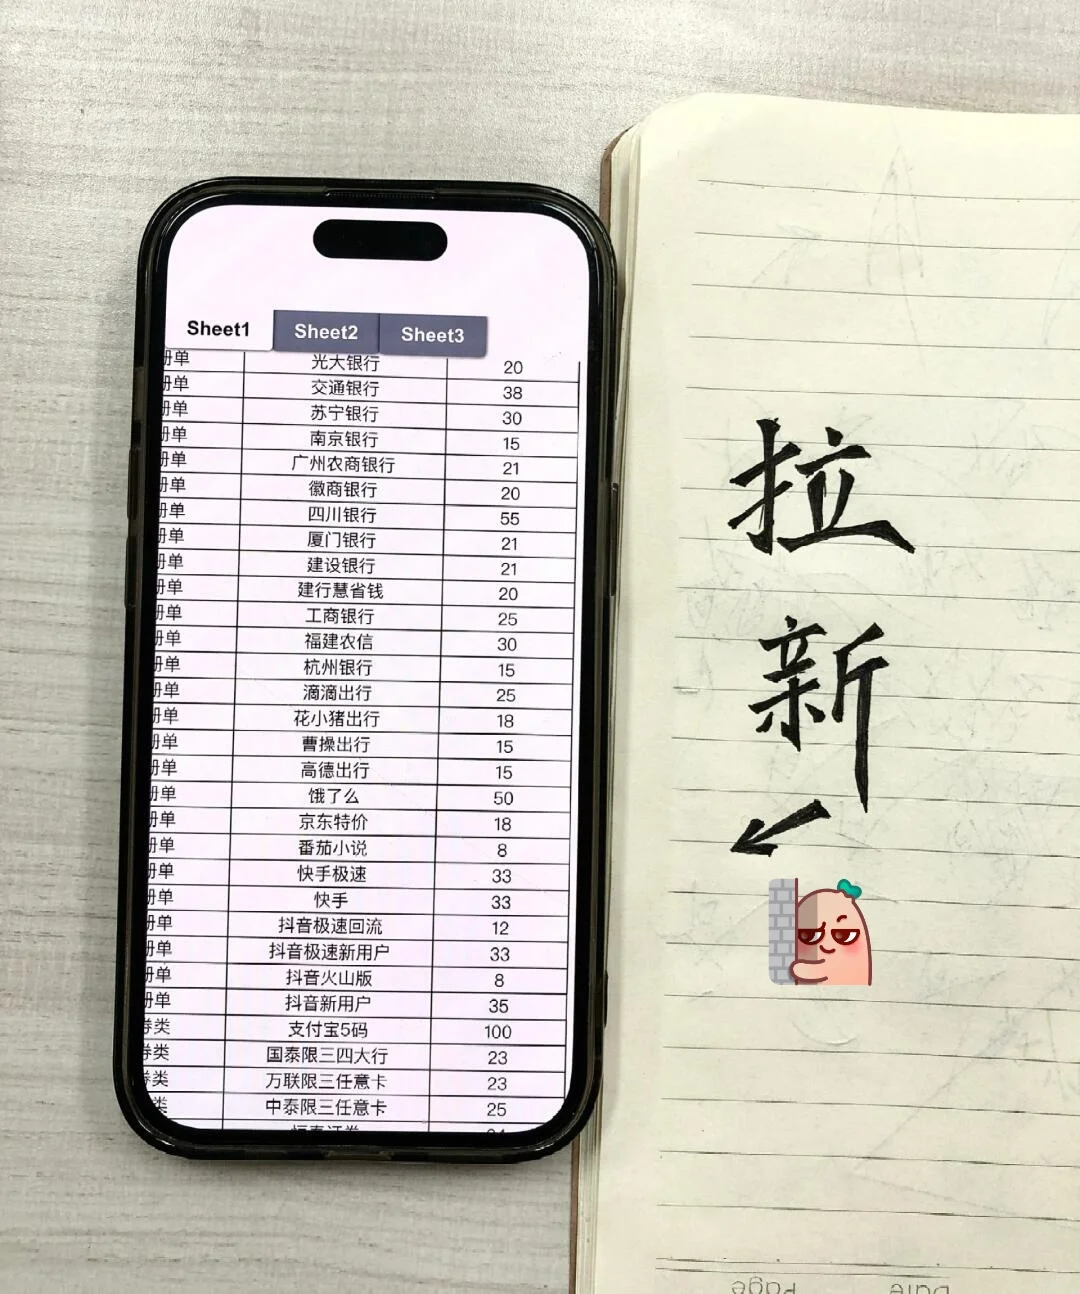 Sheet1 Sheet2 Sheet3
册单 光大银行 20
册单 交通银行 38
册单 苏宁银行 30
册单 南京银行 15
册单 广州农商银行 21
册单 徽商银行 20
册单 四川银行 55
册单 厦门银行 21
册单 建设银行 21
册单 建行慧省钱 20
册单 工商银行 25
册单 福建农信 30
册单 杭州银行 15
册单 滴滴出行 25
册单 花小猪出行 18
册单 曹操出行 15
册单 高德出行 15
册单 饿了么 50
册单 京东特价 18
册单 番茄小说 8
册单 快手极速 33
册单 快手 33
册单 抖音极速回流 12
册单 抖音极速新用户 33
册单 抖音火山版 8
册单 抖音新用户 35
券类 支付宝5码 100
券类 国泰限三四大行 23
券类 万联限三任意卡 23
类 中泰限三任意卡 25
拉
新
Page Date